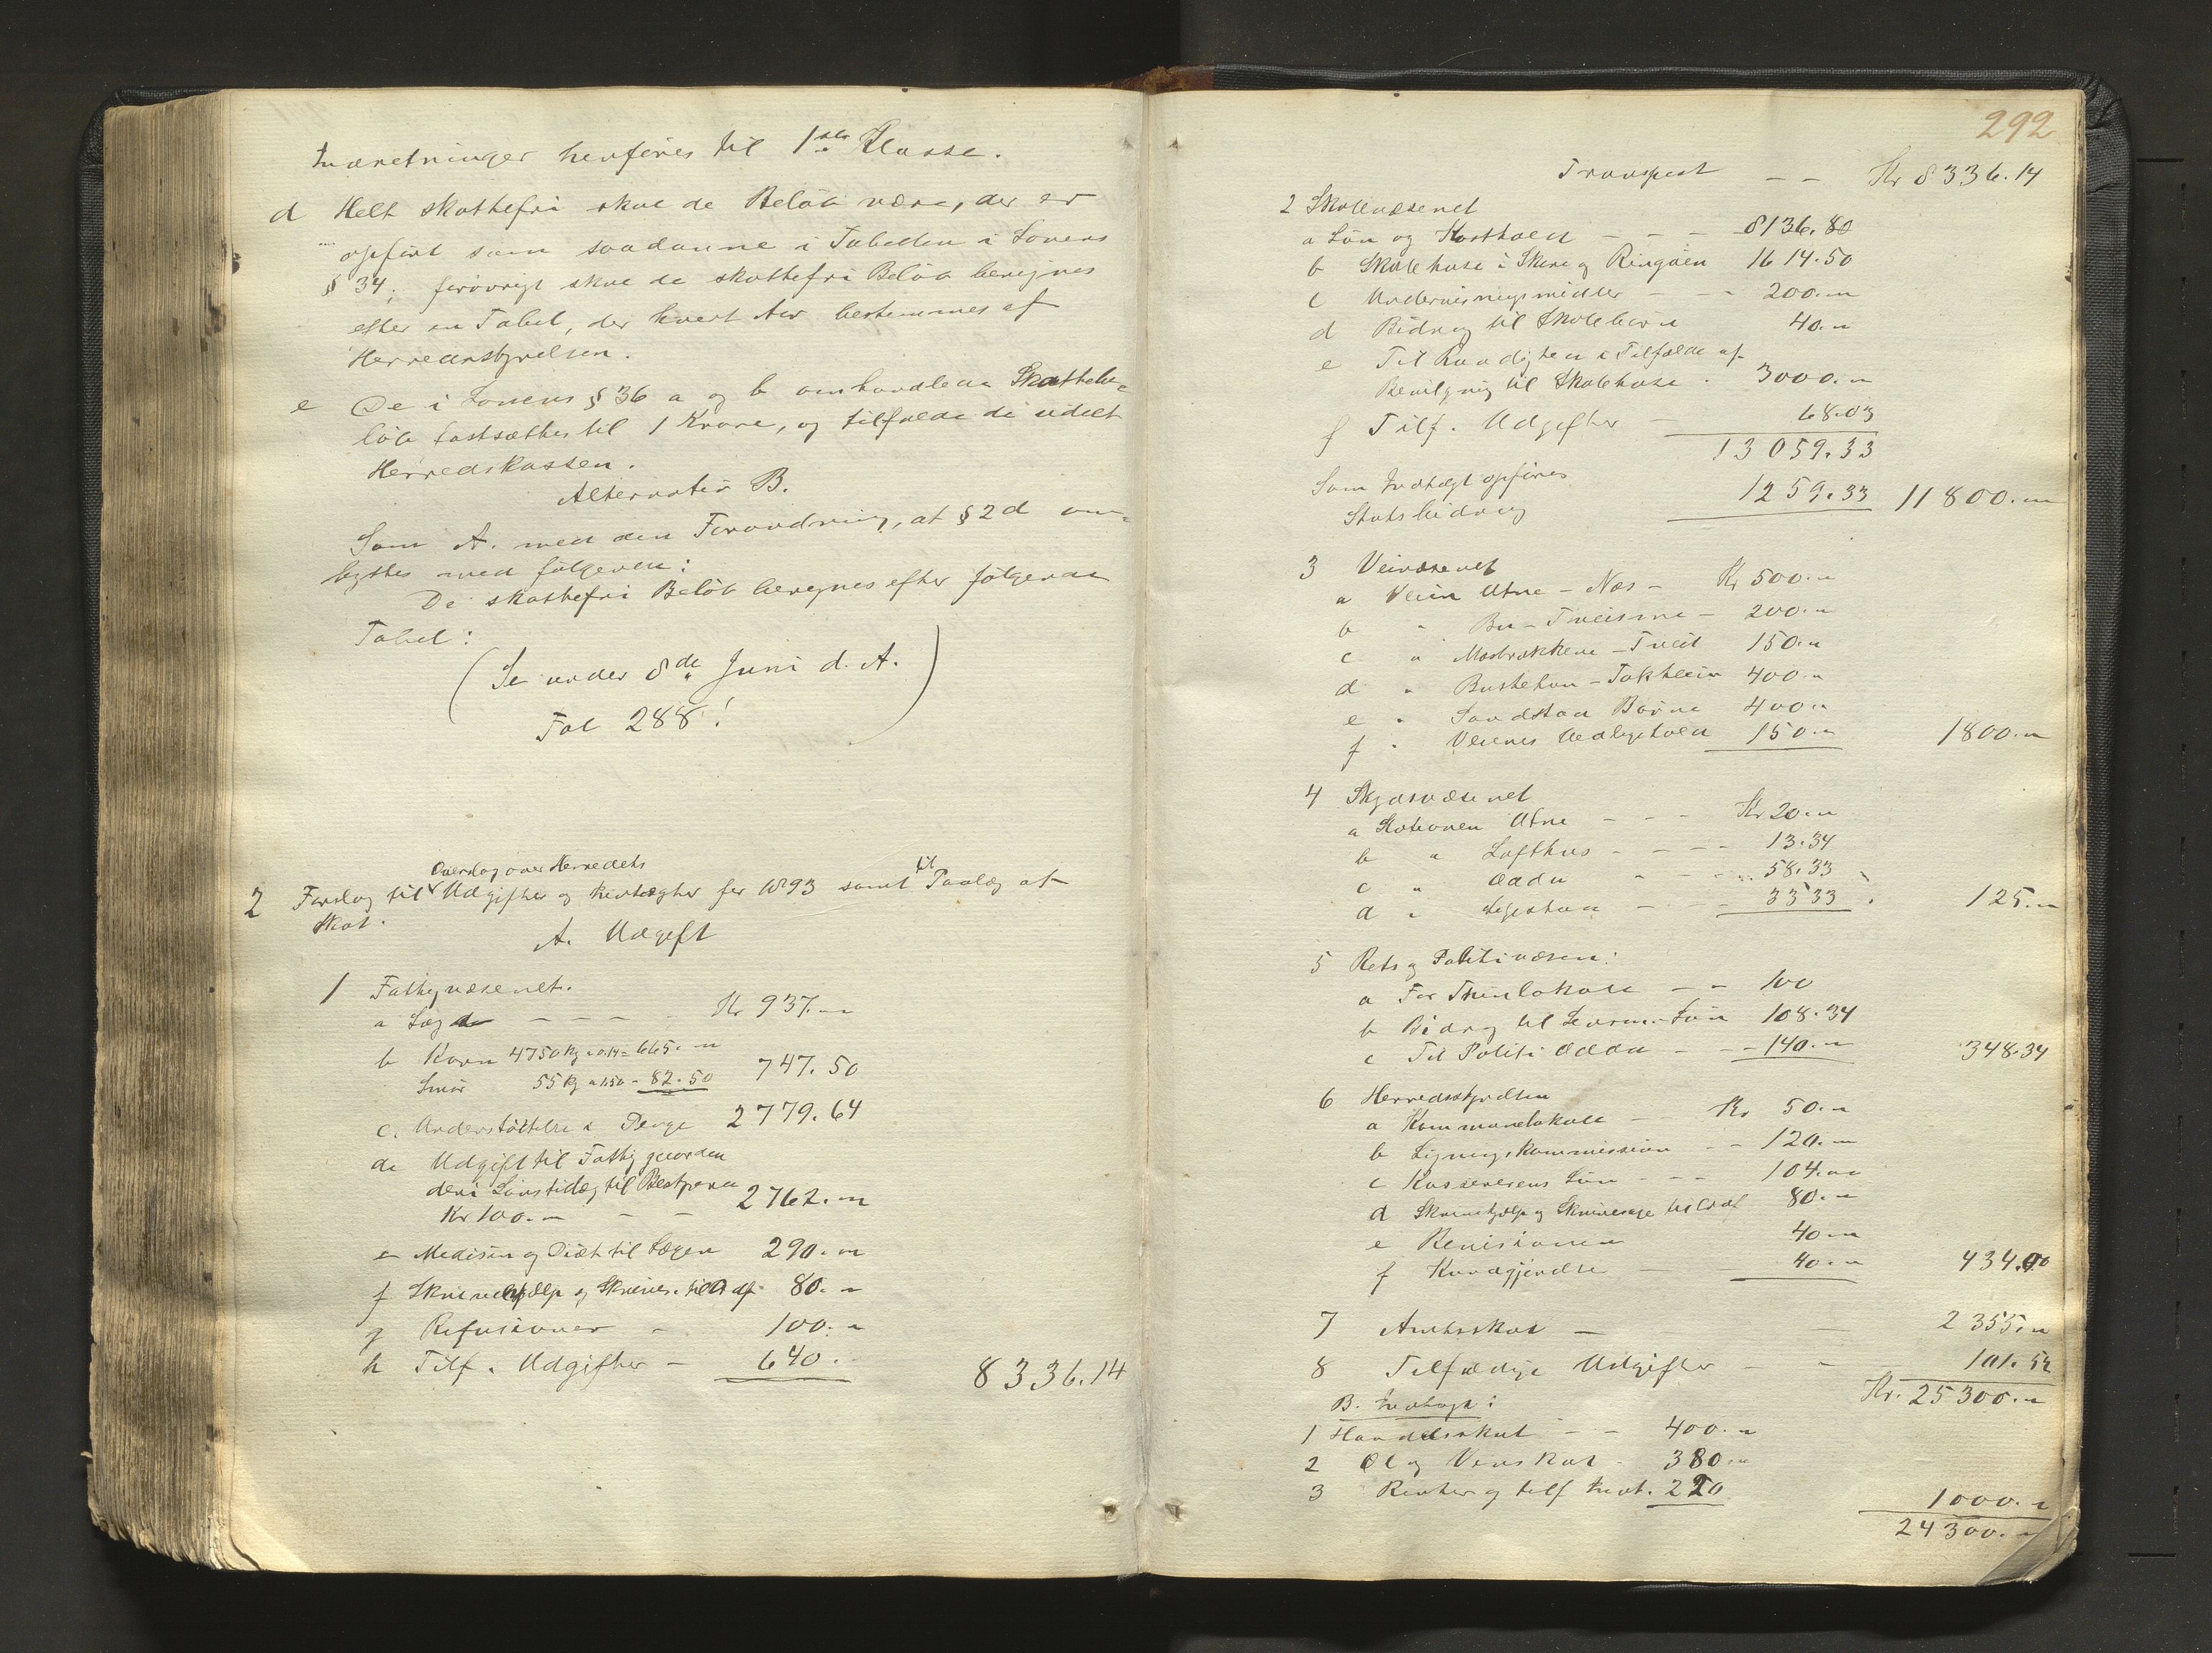 Indretninger henføres til 1ste Klasse.
d Helt skattefri skal de Beløb være, der er
opført som saadanne i Tabellen i Lovens
§ 34; forøvrigt skal de skattefri Beløb beregnes
efter en Tabel, der hvert Aar bestemmes af
Herredsstyrelsen.
e De i Lovens § 36 a og b omhandlede Skattebe-
løb fastsættes til 1 Krone, og tilfalde de udelt
Herredskassen.
Alternativ B.
Som A. med den Forandring, at § 2 d om-
byttes med følgende:
De skattefri Beløb beregnes efter følgende
Tabel:
(Se under 8de Juni d. A.)
Fol 288!
Overslag over Herredets
2 Forslag til Udgifter og Indtægter for 1893 samt til Paalæg af
Skat.
A. Udgift
1 Fattigvæsenet.
a Lægd - - - - Kr 937.-
b Korn 4750 kg a 0.14 = 665.-
Smør 55 kg a 1.50 - 82.50 747.50
c. Understøttelse i Penge 2779.64
d Udgift til Fattiggaarden
deri Lønstillæg til Bestyreren
Kr 100.- - - 2762.-
e Medisin og Diæt til Lægen 290.-
f Skrivehjælp og Skrives. til Ordf. 80.-
g Refusioner - 100.-
h Tilf. Udgifter - 640. 8336.14
292
Transport - - Kr 8336.14
2 Skolevæsenet
a Løn og Kosthold - - - 8136.80
b Skolehuse i Skare og Ringøen 1614.50
c Undervisningsmidler - - 200.-
d Bidrag til Skolebørn 40.-
e Til Raadighed i Tilfælde af
Bevilgning til Skolehuse. 3000.-
f Tilf. Udgifter - 68.03
13059.33
Som Indtægt opføres
Statsbidrag 1259.33 11800.-
3 Veivæsenet
a Veien Utne - Næs - Kr 500.-
b " Bu - Tveisme - 200.-
c " Mosbrækkene - Tveit 150.-
d " Bustetun - Tokheim 400.-
e " Sandstøa Børve 400.-
f " Veienes Vedligehold 150.- 1800.-
4 Skydsvæsenet
a Stationen Utne - - - Kr 20.-
b " Lofthus - - - - 13.34
c " Odda - - - 58.33
d " Espeland - - - 33.33 125.-
5 Rets og Politivæsen:
a For Thinglokale - - 100
b Bidrag til Lensm. Løn 108.34
c Til Politi Odda - - 140.- 348.34
6 Herredsstyrelsen
a Kommunelokale - Kr 50.-
b Ligningskommission - - 120.-
c Kassererens Løn - - - 104.-
d Skrivehjælp og Skrivesage til Ordf 80.-
e Revisionen 40.-
f Kundgjørelse - - 40.- 434.00
7 Amtsskat - - 2355.-
8 Tilfældige Udgifter - - 101.52
Kr. 25300.-
B. Indtægt:
1 Handelsskat - - 400.-
2 Øl og Vinskat - 380.-
3 Renter og tilf Indt. 220
1000.-
24300.-